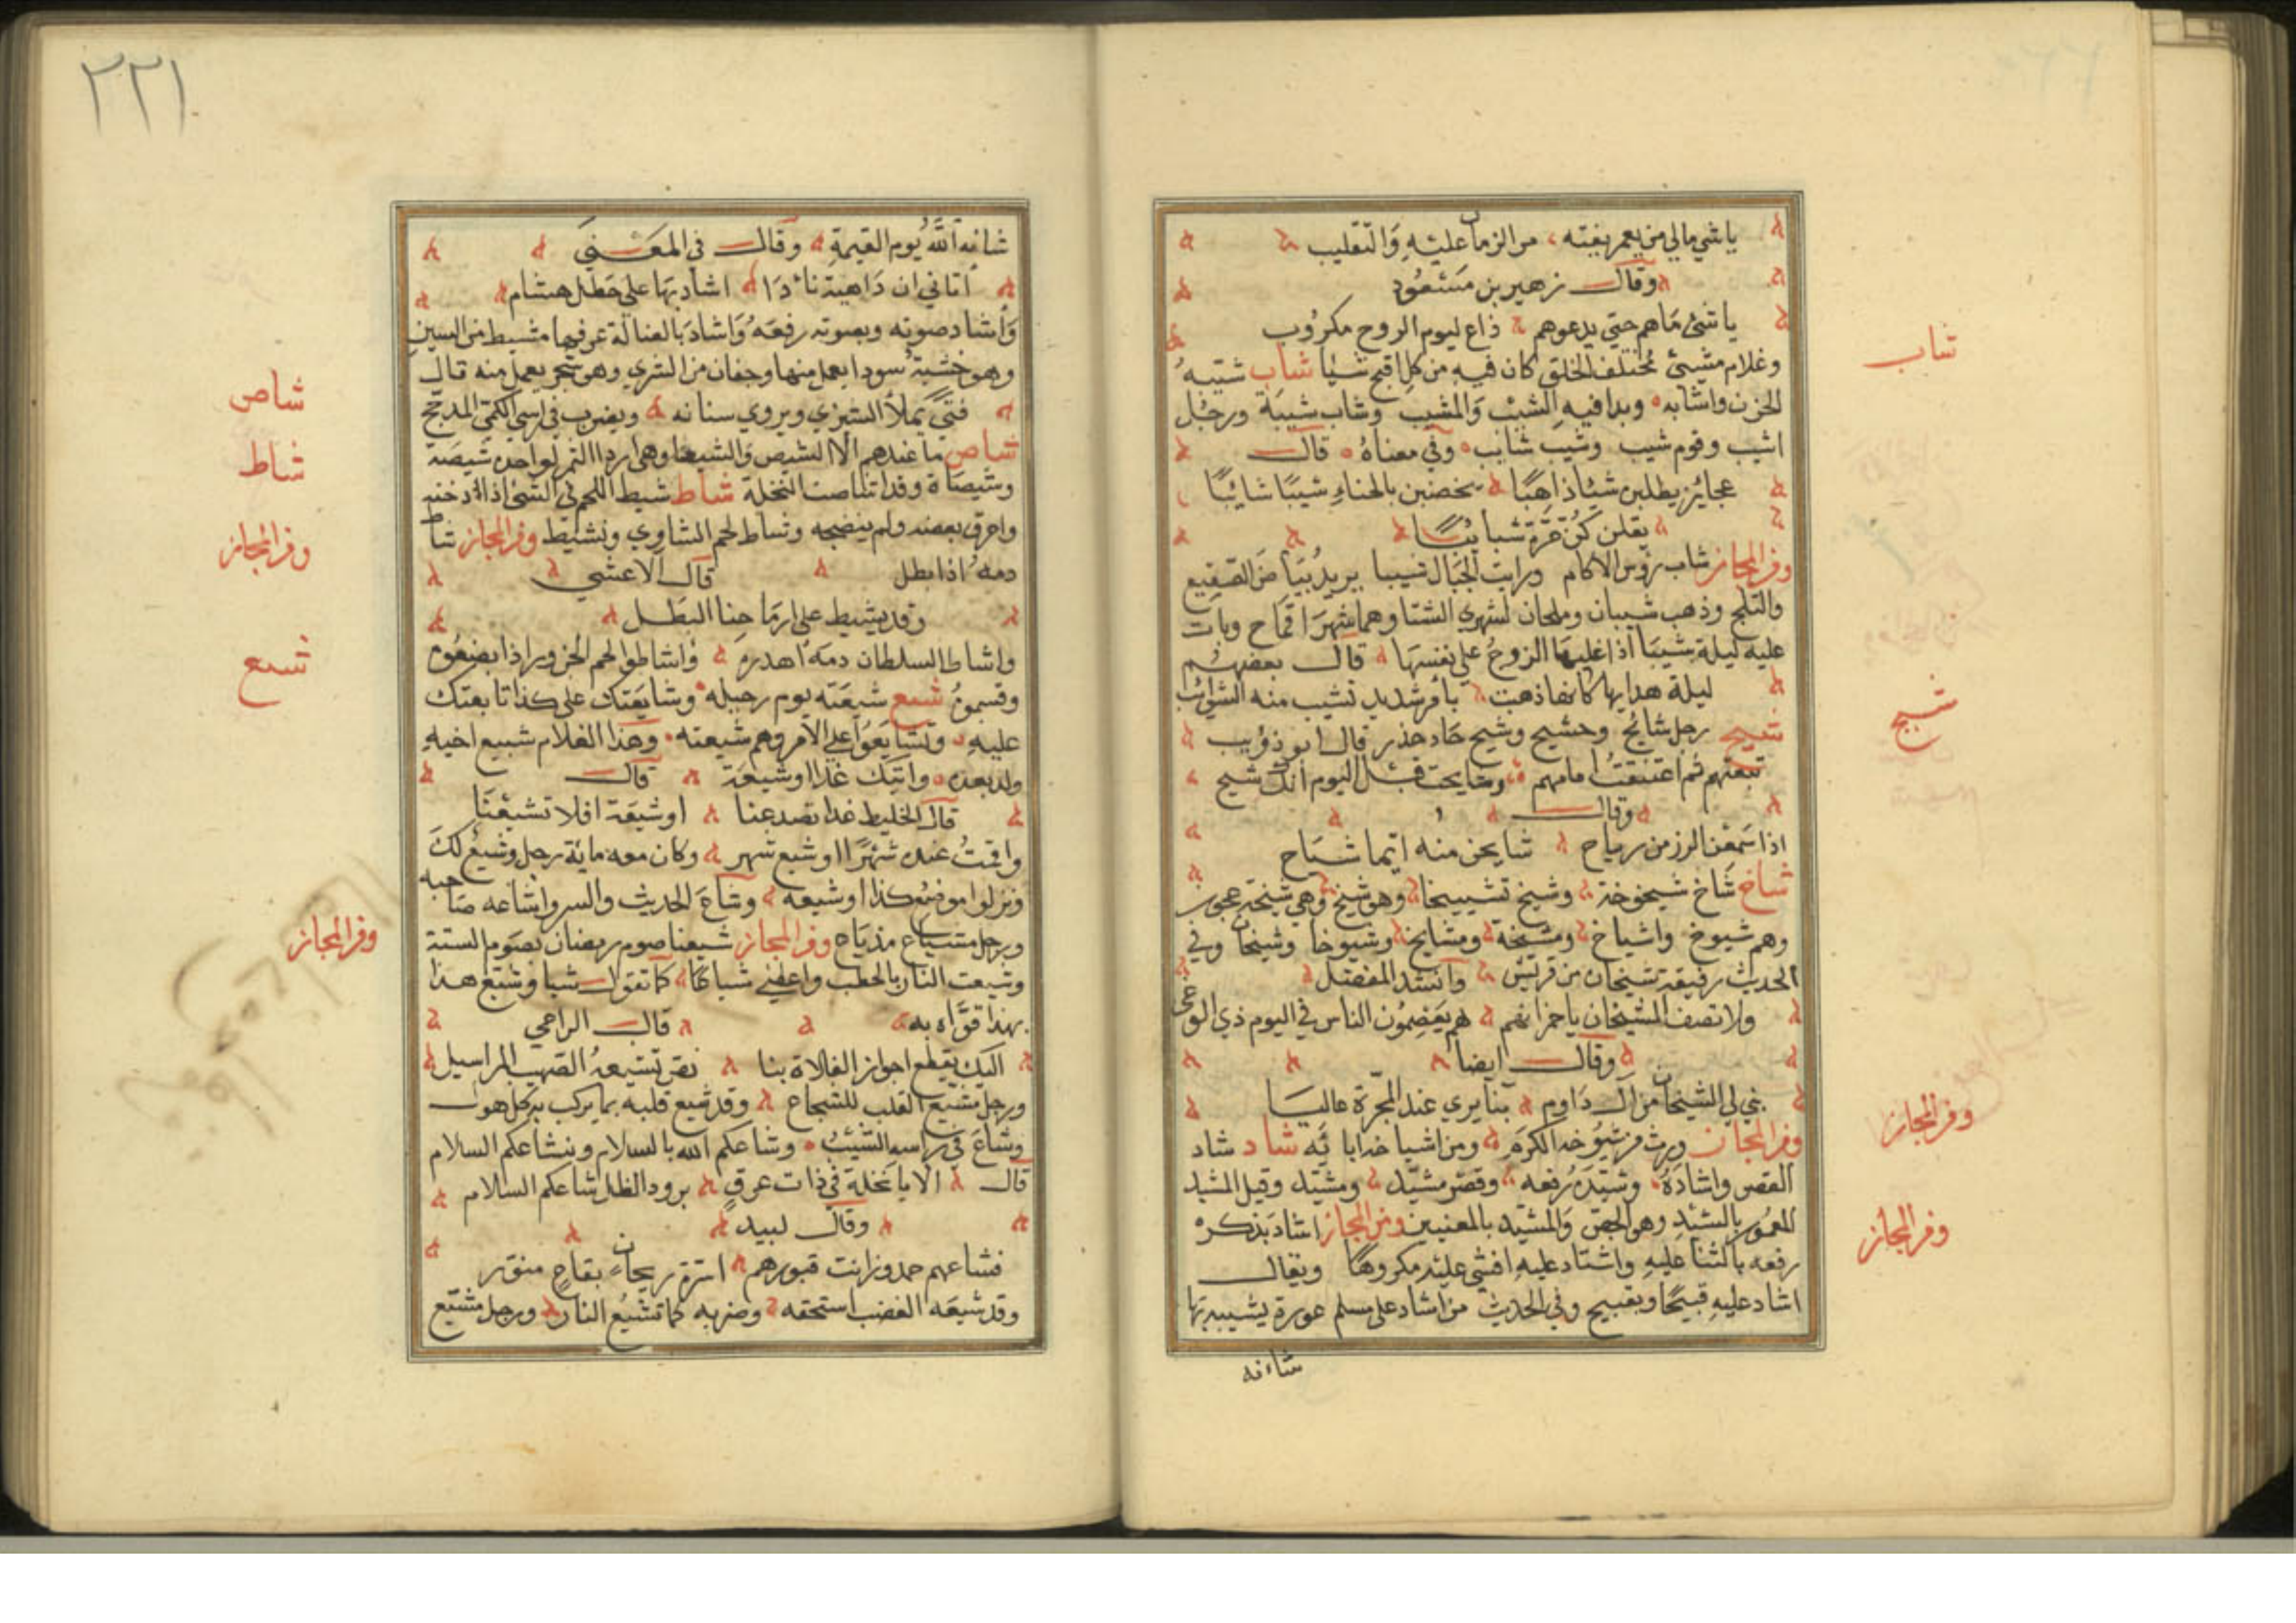 يا شي مالي من يعمر يفنه من الزمان عليه والتقليب
وقال زهير بن مسعود
يا شئ ما هم حتي يدعوهم داع ليوم الروح مكروب
وغلام مشيئ مختلف الخلق كان فيه من كل اقبح شيأ شاب شيبه
الحزن واشابه وبدا فيه الشيب والمشيب وشاب شيبة ورجل
اشيب وقوم شيب وشيب شائب وفي معناه قال
عجائز يطلبن شيئا ذاهبا يخضبن بالحناء شيبا شائبا
يقلن كن مرة شبائبا
وفر المجاز شاب رؤس الاكام ورايت الجبال شيبا يريد بيا من الصقيع
والثلج وذهب شيبان وملحان لشهري الشتا وهما شهرا قماح وباتت
عليه ليلة شيبا اذا غلبها الزوج علي نفسها قال بعضهم
ليلة هداىها كانفا ذهبت بامر شديد تشيب منه الشوائب
شيح رجل شائح وحشيح وشيح حاد حذر قال ابو ذؤيب
تبعتهم ثم اعتنقت امامهم وشايحت قبل اليوم انك شيح
وقال
اذا سمعن الرز من رباح شايحن منه ايما شياح
شاخ شاخ شيخوخة وشيخ تشييخا وهو شيخ وهي شيخة عجوز
وهم شيوخ واشياخ ومشيخة ومشايخ وشيوخا وشيخان وفي
الحديث رفيقة شيخان من قريش وانشد المفضل
ولا تصف المشيخان ياحمز انهم هم يعصمون الناس في اليوم ذي الوغى
وقال ايضا
بني لي الشيخان من ال داوم بنا يري عند المجرة عاليا
وفر المجاز ورث من شيوخه الكرم ومن اشياخه ابائه شاد شاد
القصر واشاده وشيده رفعه وقصر مشيد ومشيد وقيل المشيد
المعمور بالشيد وهو الجص والمشيد بالمعنيين ومن المجاز اشاد بذكره
رفعه بالثنا عليه واشاد عليه افشي عليه مكروها ويقال
اشاد عليه قبيحا وبقبيح وفي الحديث من اشاد على مسلم عورة يشيبه بها
شانه
شاب
شيح
وفر المجاز
وفر المجاز
٢٢١
شانه الله يوم القيمة وقال في المعني
اتاني ان داهية نادا اشاد بها علي خطل هشام
واشاد صوته وبصوته رفعه واشاد بالضالة عرفها مشيط من السين
وهو خشبة سودا يعمل منها وجفان من الشري وهو شجر يعمل منه قال
فتي يملأ الشيزي ويروي سنانه ويضرب في راس الكمي المدجج
شاص ما عندهم الا الشيص والشيصا وهي اردا التمر لواحده شيصة
وشيصاة وقد اشاصت النخلة شاط شيط اللحم في الشي اذا ادخنه
واحرق بعضه ولم ينضجه وشاط لحم الشاوي وتشيط وفر المجاز شاط
دمه اذا بطل قال الاعشي
وقد يشيط علي ارماحنا البطل
واشاط السلطان دمه اهدره واشاطوا لحم الجزور اذا بضعوه
وقسموه شيع شيعته يوم رحيله وشايعتك علي كذا تابعتك
عليه وتشايعوا علي الامر وهم شيعته وهذا الغلام شيع اخيه
ولد بعده واتيك غدا او شيعة قال
قال الخليط غدا تصدعنا او شيعة افلا تشيعنا
واقمت عنده شهرا او شيع شهر وكان معه ماية رجل وشيع لك
ونزلوا موضع كذا او شيعه وشاع الحديث والسر واشاعه صاحبه
ورجل مشياع مذياع وفر المجاز شيعنا صوم رمضان بصوم الستة
وشيعت النار بالحطب واعطني شياعا كما تقول شبابا وشيع هذا
بهذا قواه به قال الراعي
اليك يقطع اجواز الفلاة بنا نص تشيعه الصهب المراسيل
ورجل مشيع القلب للشجاع وقد شيع قلبه بما يركب به كل هول
وشاع في راسه الشيب وشاعكم الله بالسلام وشاعكم السلام
قال الا يا نخلة في ذات عرق برود الظل شاعكم السلام
وقال لبيد
فشاعهم حمد وزانت قبورهم اسرة ريحان بقاع منور
وقد شيعه الغضب استحقه وضربه كما تشيع النار ورجل مشيع
شاص
شاط
وفر المجاز
شيع
وفر المجاز